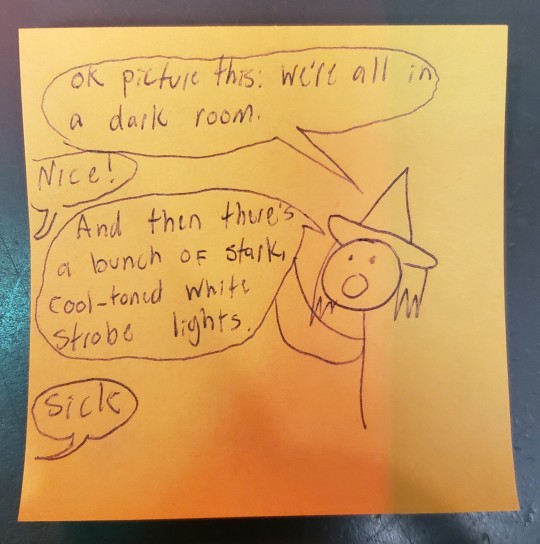 ok picture this: we're all in
a dark room.
Nice!
And then there's
a bunch of stark,
cool-toned white
strobe lights.
Sick